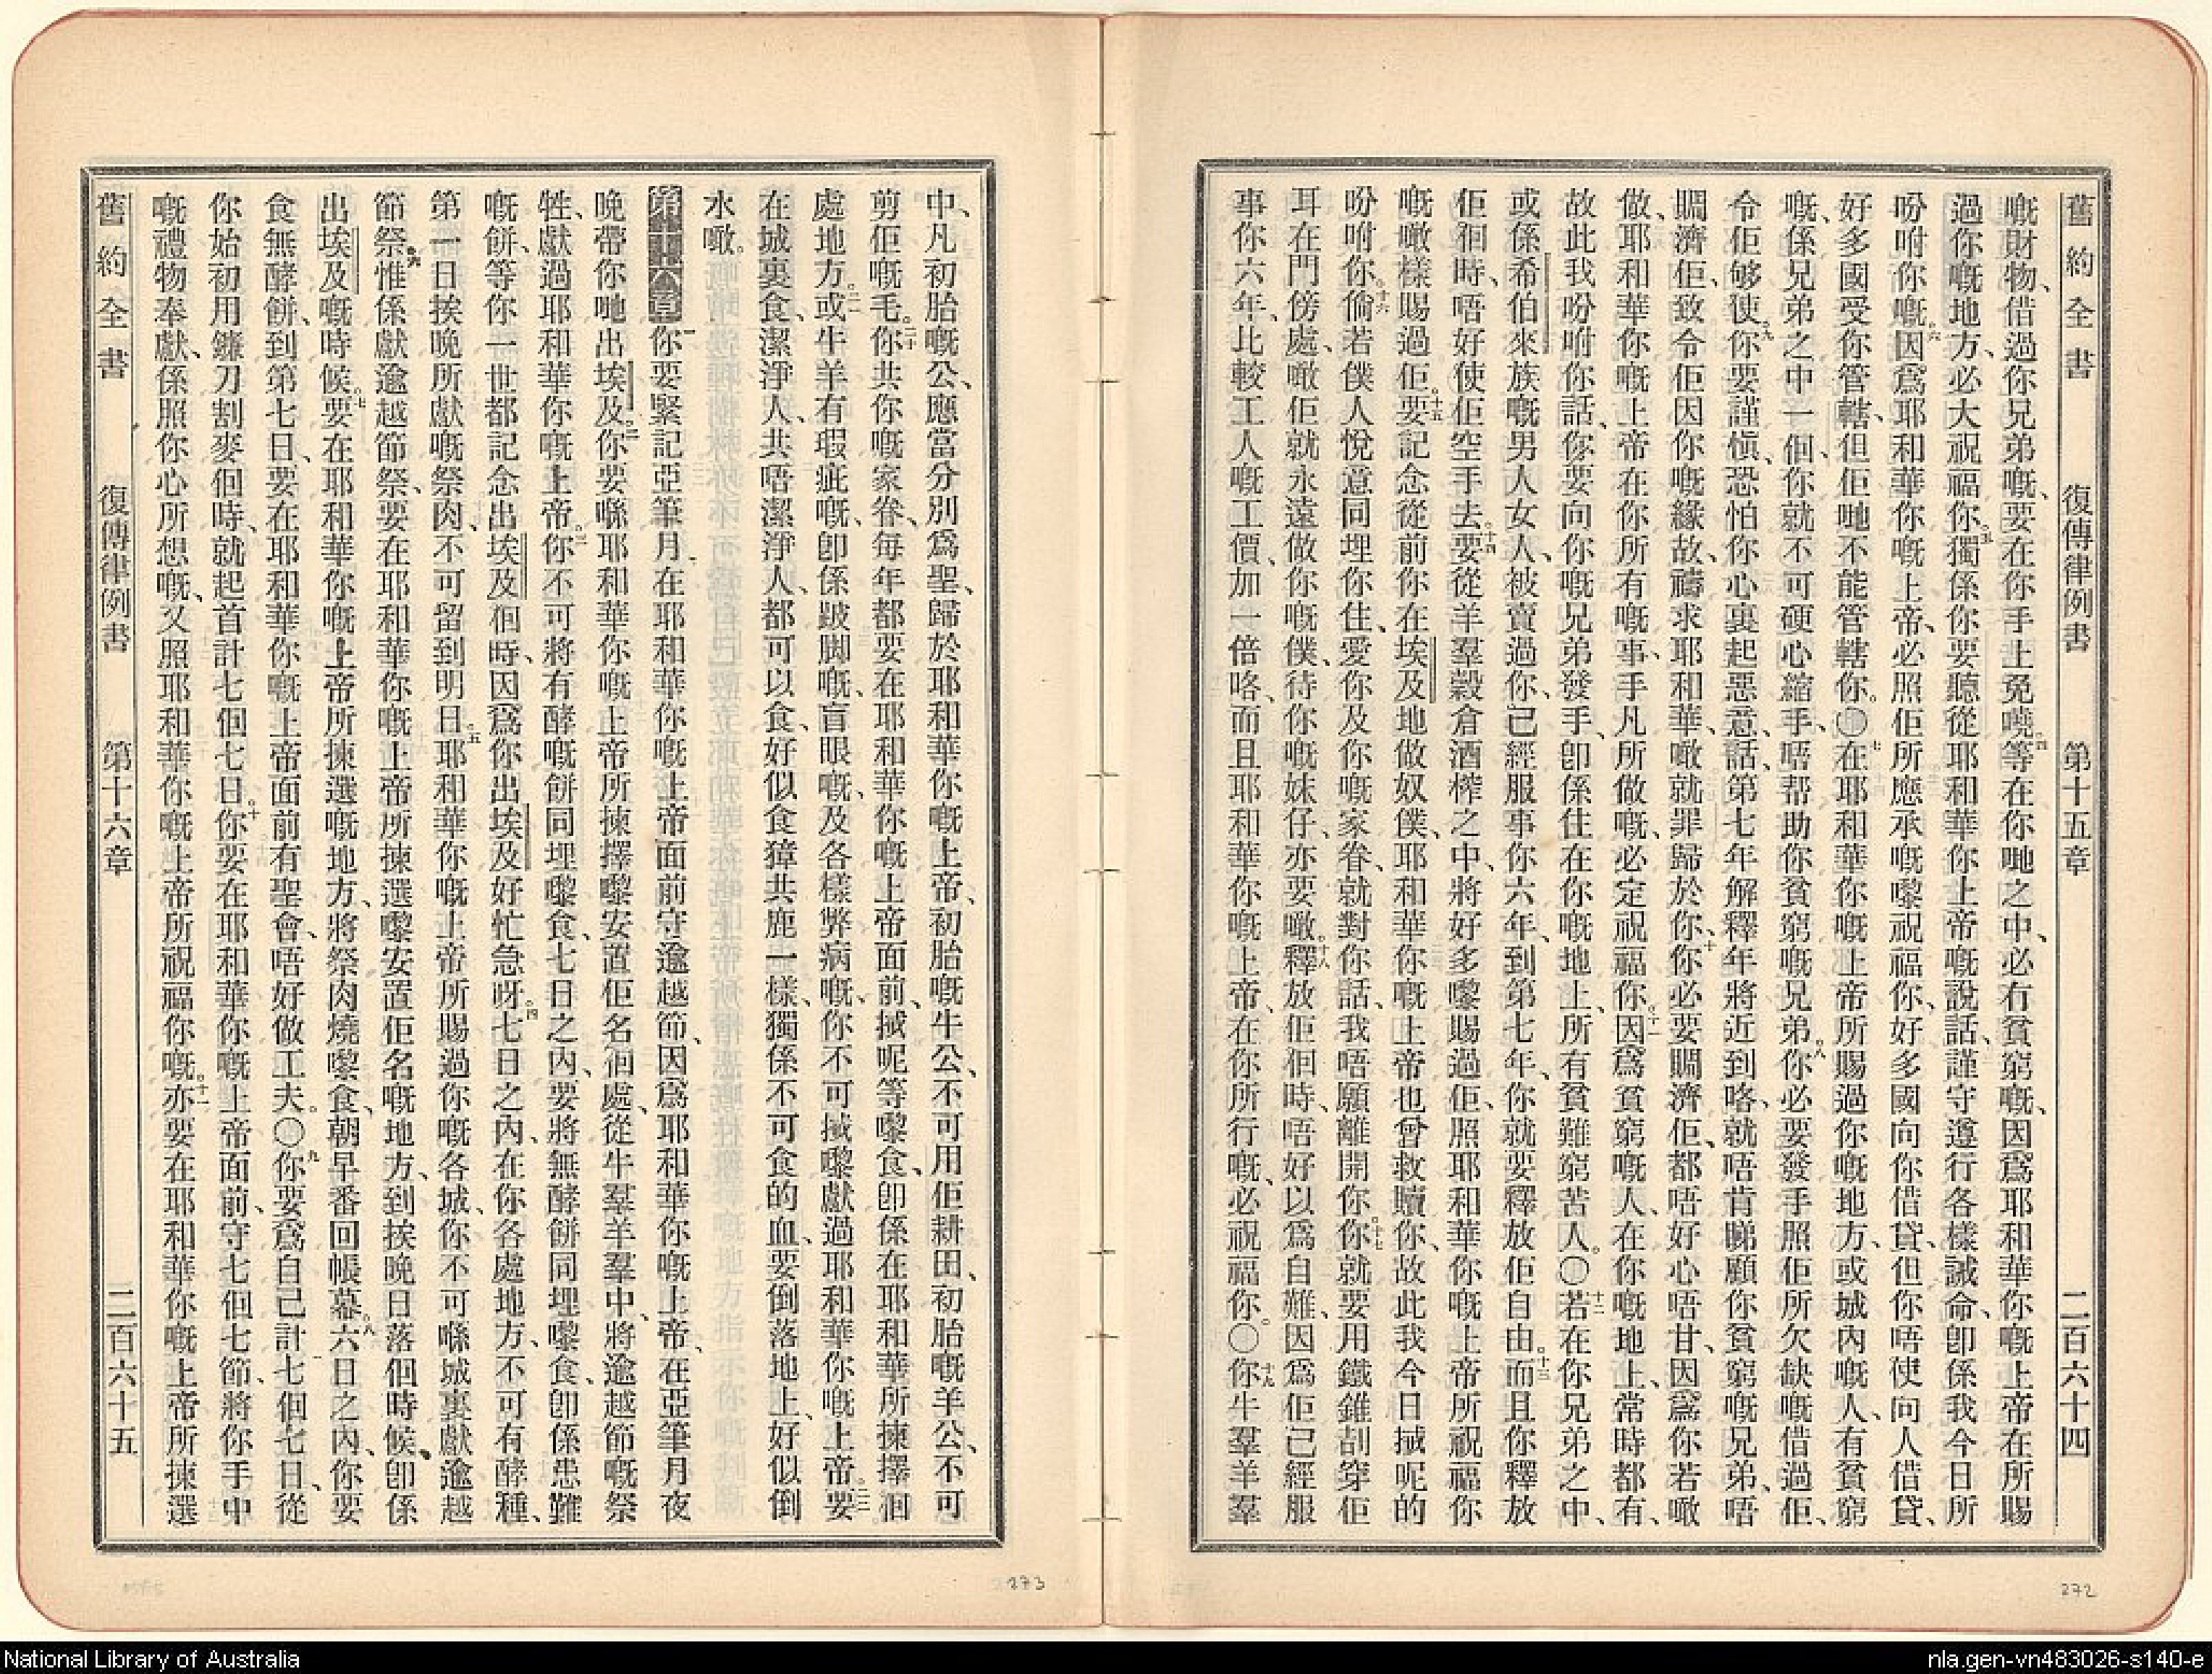 舊約全書　復傳律例書　第十五章　二百六十四
嘅財物、借過你兄弟嘅、要在你手上免嘵。四等在你哋之中、必冇貧窮嘅、因爲耶和華你嘅上帝在所賜
過你嘅地方、必大祝福你。五獨係你要聽從耶和華你上帝嘅說話、謹守遵行各樣誡命、卽係我今日所
吩咐你嘅。六因爲耶和華你嘅上帝、必照佢所應承嘅嚟祝福你、好多國向你借貸、但你唔使向人借貸、
好多國受你管轄、但佢哋不能管轄你。〇七在耶和華你嘅上帝所賜過你嘅地方、或城內嘅人、有貧窮
嘅、係兄弟之中一個、你就不可硬心縮手、唔帮助你貧窮嘅兄弟。八你必要發手照佢所欠缺嘅借過佢、
令佢够使。九你要謹愼、恐怕你心裏起惡意、話、第七年解釋年將近到咯、就唔肯睇顧你貧窮嘅兄弟、唔
賙濟佢、致令佢因你嘅緣故、禱求耶和華、噉就罪歸於你、十你必要賙濟佢、都唔好心唔甘、因爲你若噉
做、耶和華你嘅上帝在你所有嘅事、手凡所做嘅、必定祝福你。十一因爲貧窮嘅人、在你嘅地上、常時都有、
故此我吩咐你話、你要向你嘅兄弟發手、卽係住在你嘅地上、所有貧難窮苦人。〇十二若在你兄弟之中、
或係希伯來族嘅男人女人、被賣過你、已經服事你六年、到第七年、你就要釋放佢自由。十三而且你釋放
佢個時、唔好使佢空手去。十四要從羊羣穀倉酒榨之中、將好多嚟賜過佢、照耶和華你嘅上帝所祝福你
嘅噉樣賜過佢。十五要記念從前你在埃及地做奴僕、耶和華你嘅上帝也曾救贖你、故此我今日搣呢的
吩咐你。十六倘若僕人悅意同埋你住、愛你及你嘅家眷、就對你話、我唔願離開你。十七你就要用鐵錐刮穿佢
耳在門傍處、噉佢就永遠做你嘅僕、待你嘅妹仔、亦要噉。十八釋放佢個時、唔好以爲自難、因爲佢已經服
事你六年、比較工人嘅工價、加一倍咯、而且耶和華你嘅上帝、在你所行嘅、必祝福你。〇十九你牛羣羊羣
中、凡初胎嘅公、應當分別爲聖、歸於耶和華你嘅上帝、初胎嘅牛公、不可用佢耕田、初胎嘅羊公、不可
剪佢嘅毛。二十你共你嘅家眷、每年都要在耶和華你嘅上帝面前、搣呢等嚟食、卽係在耶和華所揀擇個
處地方。二一或牛羊有瑕疵嘅、卽係跛脚嘅、盲眼嘅、及各樣弊病嘅、你不可搣嚟獻過耶和華你嘅上帝。二二要
在城裏食、潔淨人、共唔潔淨人、都可以食、好似食獐共鹿一樣、二三獨係不可食的血、要倒落地上、好似倒
水噉。
第十六章　一你要緊記亞筆月、在耶和華你嘅上帝面前守逾越節、因爲耶和華你嘅上帝、在亞筆月夜
晚帶你哋出埃及。二你要喺耶和華你嘅上帝所揀擇嚟安置佢名個處、從牛羣羊羣中、將逾越節嘅祭
牲、獻過耶和華你嘅上帝。三你不可將有酵嘅餅同埋嚟食、七日之內、要將無酵餅同埋嚟食、卽係患難
嘅餅、等你一世都記念出埃及個時、因爲你出埃及好忙急呀。四七日之內、在你各處地方、不可有酵種、
第一日挨晚所獻嘅祭肉、不可留到明日。五耶和華你嘅上帝所賜過你嘅各城、你不可喺城裏獻逾越
節祭。六惟係獻逾越節祭、要在耶和華你嘅上帝所揀選嚟安置佢名嘅地方、到挨晚日落個時候、卽係
出埃及嘅時候。七要在耶和華你嘅上帝所揀選嘅地方、將祭肉燒嚟食、朝早番回帳幕。八六日之內、你要
食無酵餅、到第七日、要在耶和華你嘅上帝面前有聖會、唔好做工夫。〇九你要爲自己計七個七日、從
你始初用鐮刀割麥個時、就起首計七個七日。十你要在耶和華你嘅上帝面前、守七個七節、將你手中
嘅禮物奉獻、係照你心所想嘅、又照耶和華你嘅上帝所祝福你嘅。十一亦要在耶和華你嘅上帝所揀選
舊約全書　復傳律例書　第十六章　二百六十五
273
272
National Library of Australia
nla.gen-vn483026-s140-e